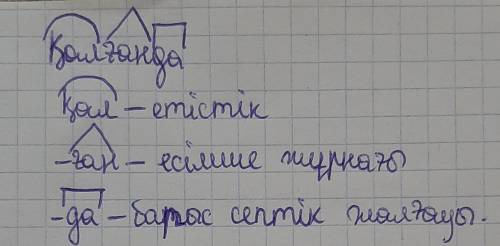 Қалғанда
Қал – етістік
-ған – есімше жұрнағы
-да – барыс септік жалғауы.